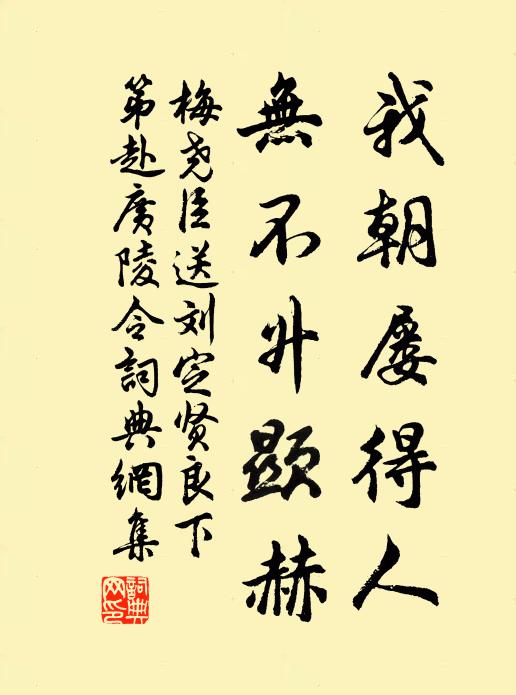 我朝屡得人
無不升顯赫
梅尧臣送刘定贤良下
第赴廣陵令詞典網集
詞典
网印